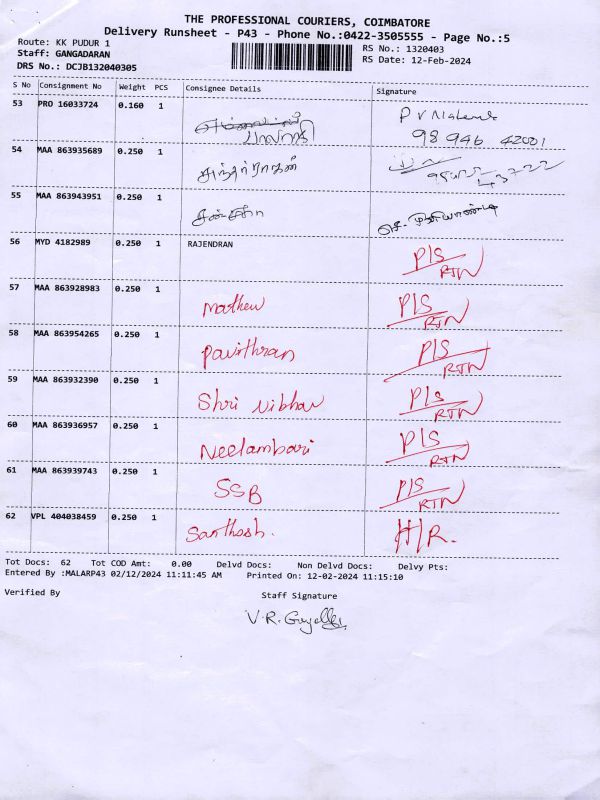 THE PROFESSIONAL COURIERS, COIMBATORE
Delivery Runsheet - P43 - Phone No.:0422-3505555 - Page No.:5
Route: KK PUDUR 1
RS No.: 1320403
Staff: GANGADARAN
RS Date: 12-Feb-2024
DRS No.: DCJB132040305
S No Consignment No Weight PCS Consignee Details Signature
53 PRO 16033724 0.160 1
98 946 42001
54 MAA 863935689 0.250 1
55 MAA 863943951 0.250 1
56 MYD 4182989 0.250 1 RAJENDRAN P/S
RTN
57 MAA 863928983 0.250 1 Mathew P/S
RTN
58 MAA 863954265 0.250 1 Pavithran P/S
RTN
59 MAA 863932390 0.250 1 Shri Vibhav P/S
RTN
60 MAA 863936957 0.250 1 Neelambari P/S
RTN
61 MAA 863939743 0.250 1 SSB P/S
RTN
62 VPL 404038459 0.250 1 Santhosh. H/R.
Tot Docs: 62 Tot COD Amt: 0.00 Delvd Docs: Non Delvd Docs: Delvy Pts:
Entered By :MALARP43 02/12/2024 11:11:45 AM Printed On: 12-02-2024 11:15:10
Verified By Staff Signature
V.R.